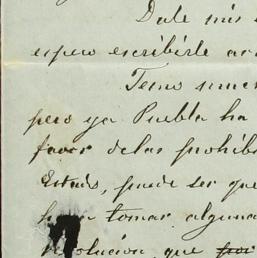 Dale mis
espero escribirle
Temo
pero ya Puebla ha
favor de las prohib
Estads, puede ser que
tomar alguna
que por